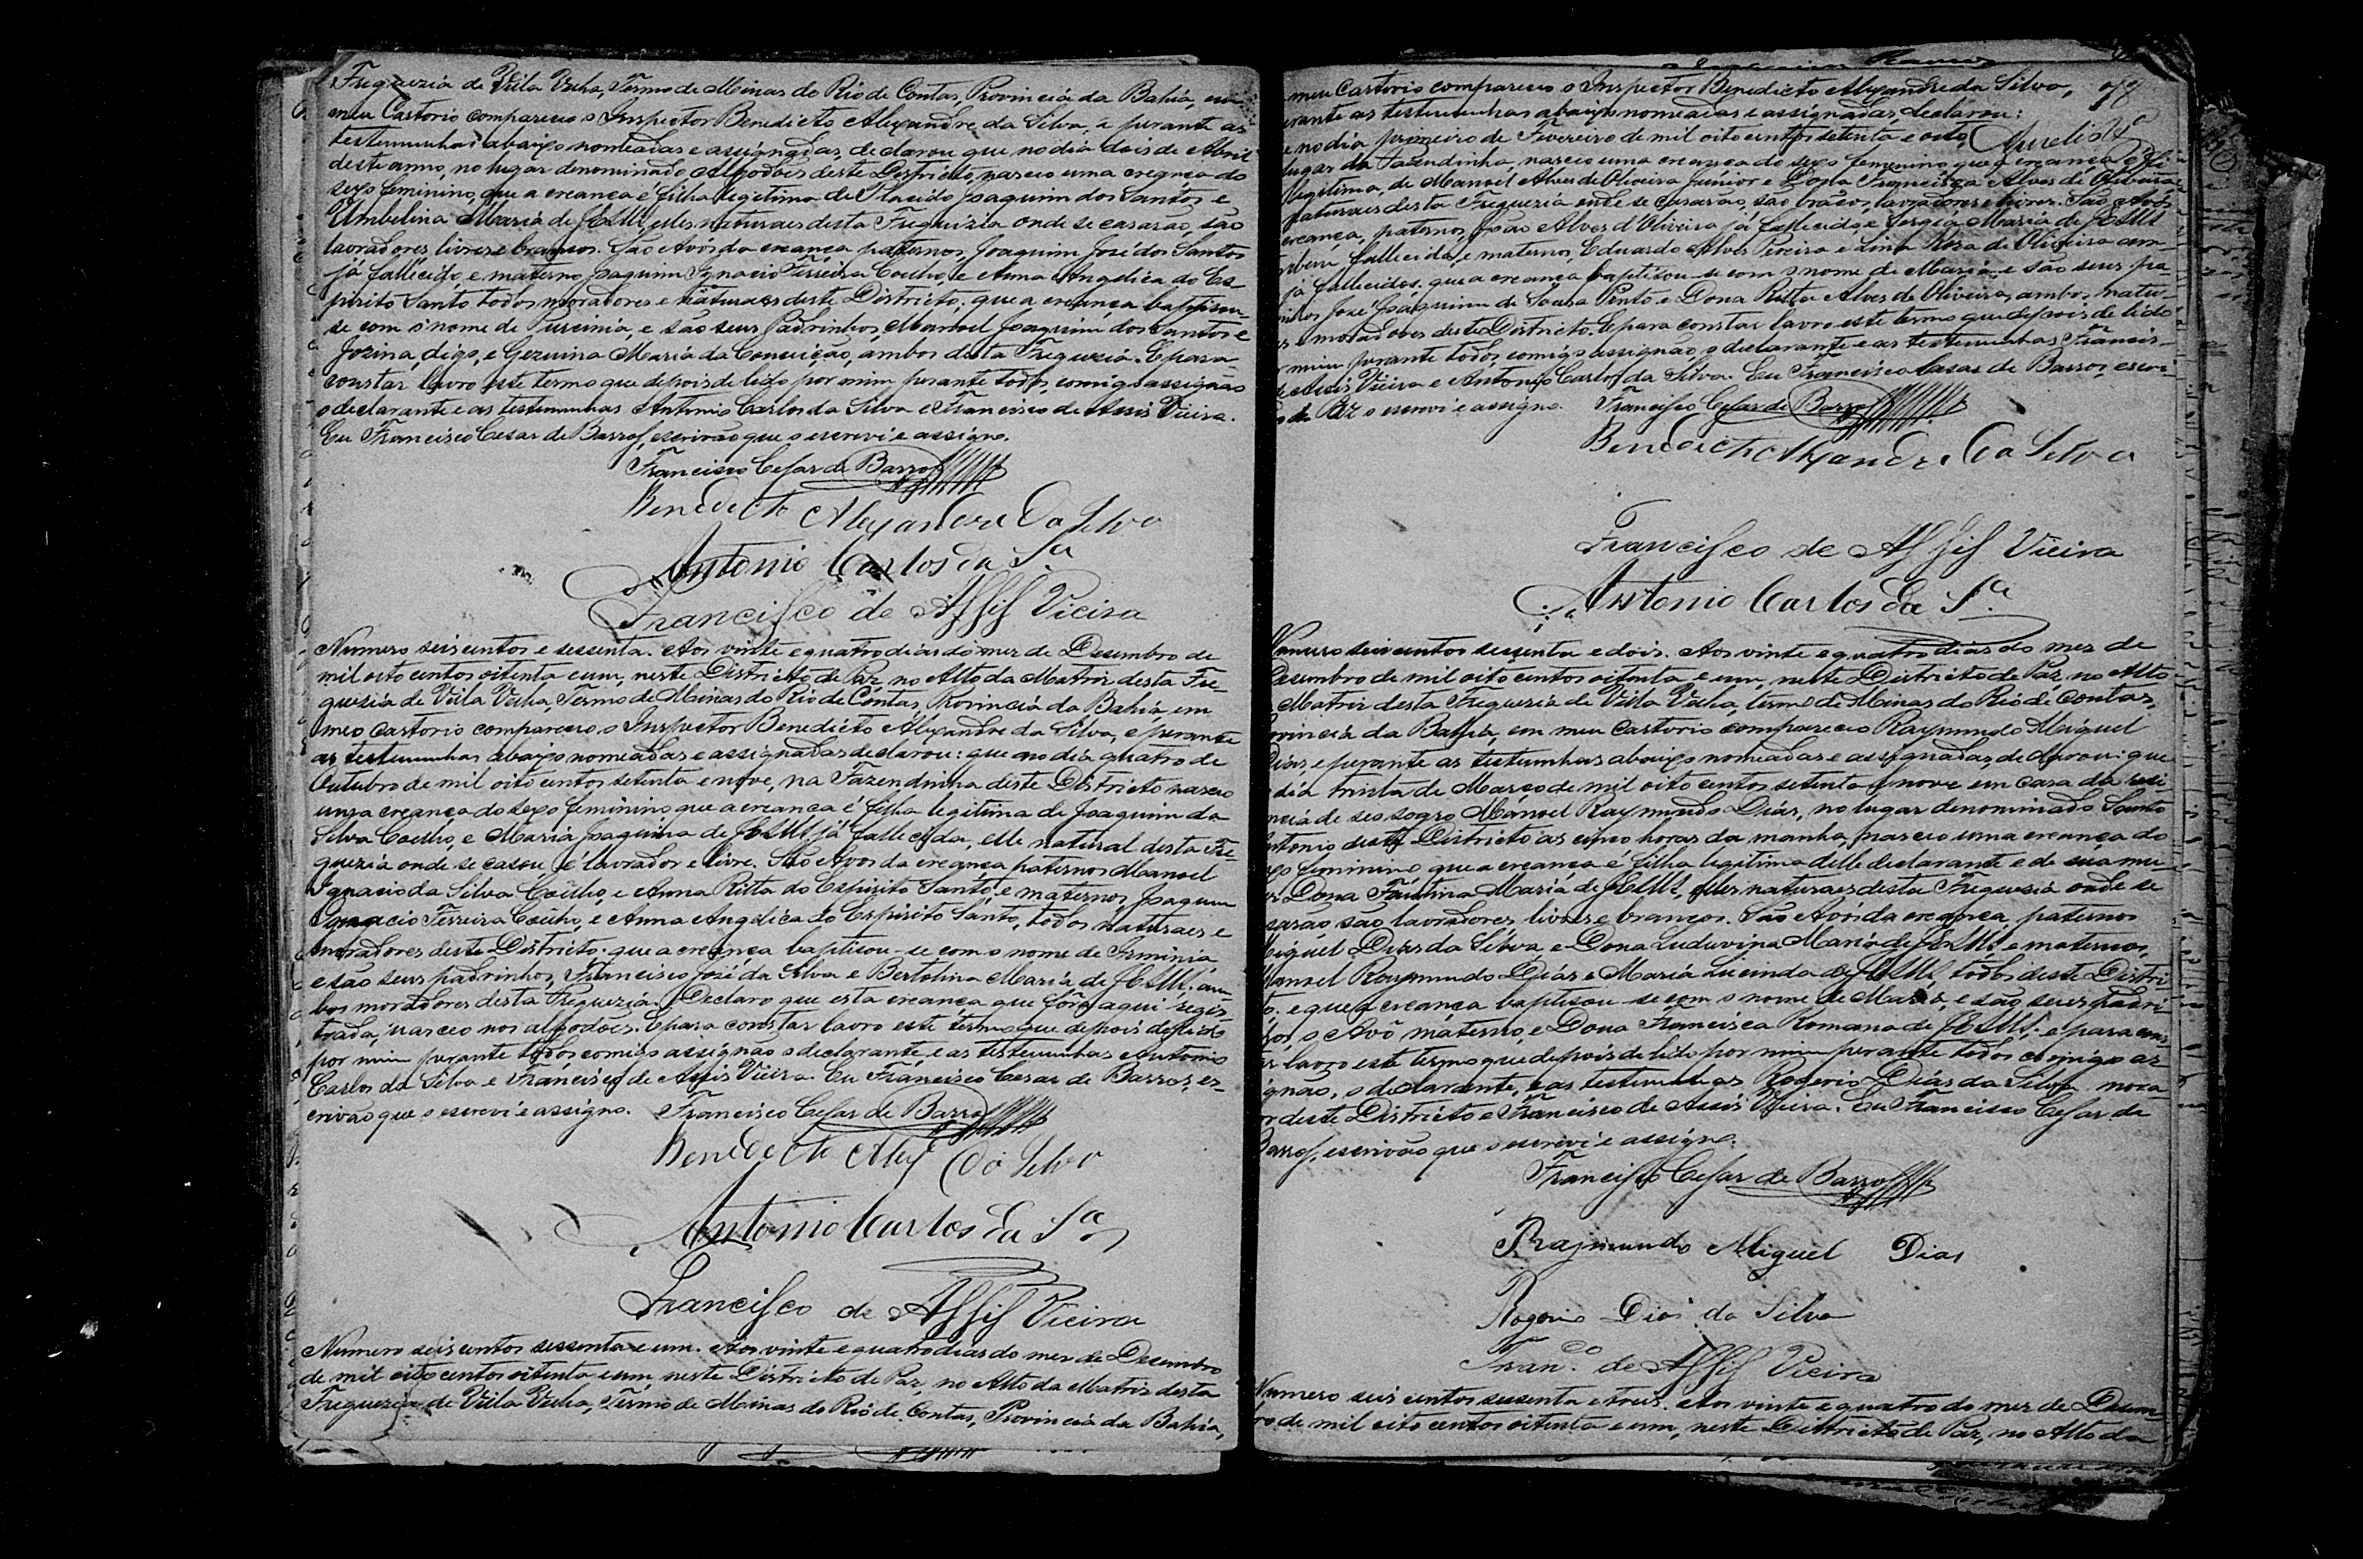 Freguezia de Villa Velha, Termo de Minas do Rio de Contas, Provincia da Bahia, em
meu Castorio compareceu o Inspector Benedicto Alexandre da Silva, e perante as
testemunhas abaixo nomeadas e assignadas, declarou que no dia dois de Abril
deste anno, no lugar denominado Algodões deste Districto, nasceu uma creança do
sexo feminino, que a creança é filha legitima de Placido Joaquim dos Santos e
Umbelina Maria de JESUS, elles naturaes desta Freguezia onde se casarão, são
lavradores, livres e brancos. São Avós da creança paternos, Joaquim José dos Santos
já fallecido, e materno Joaquim Ignacio Ferreira Coelho, e Anna Angelica do Es-
pirito Santo todos moradores e naturaes deste Districto; que a creança baptisou-
se com o nome de , e são seus Padrinhos, Manoel Joaquim dos Santos e
Jozina, digo, e Gezuina Maria da Conceição, ambos desta Freguesia. E para
constar lavro este termo que depois de lido por mim perante todos, comigo assignão
o declarante e as testemunhas Antonio Carlos da Silva e Francisco de Assis Vieira.
Eu Francisco Cesar de Barros, escrivão que o escrevi e assigno.
Francisco Cesar de Barros
Benedicto Alexandre da Silva
Antonio Carlos da Sa
Francisco de Assis Vieira
Numero seiscentos e sessenta. Aos vinte e quatro dias do mez de Desembro de
mil oito centos oitenta e um, neste Districto de Paz, no Alto da Matriz desta Fre-
guezia de Villa Velha, Termo de Minas do Rio de Contas, Provincia da Bahia, em
meo Castorio compareceo o Inspector Benedicto Alexandre da Silva, e perante
as testemunhas abaixo nomeadas e assignadas declarou: que no dia quatro de
Outubro de mil oito centos setenta e nove, na Fazendinha deste Districto nasceo
uma creança do sexo feminino que a creança é filha legitima de Joaquim da
Silva Coelho, e Maria Joaquina de JESUS já fallecida, elle natural desta Fre-
guezia onde se casou, é lavrador e livre. São Avós da creança paternos Manoel
Ignacio da Silva Coelho, e Anna Ritta do Espirito Santo, e maternos, Joaquim
Ignacio Ferreira Coelho, e Anna Angelica do Espirito Santo, todos naturaes e
moradores deste Districto; que a creança baptisou-se com o nome de Irminia
e são seus padrinhos, Francisco José da Silva e Bertolina Maria de JESUS, am-
bos moradores desta Freguezia. Declaro que esta creança que fora aqui regis-
trada, nasceo nos algodões. E para constar lavro este termo que depois de lido
por mim perante todos comigo assignão o declarante, e as testemunhas Antonio
Carlos da Silva e Francisco de Assis Vieira. Eu Francisco Cesar de Barros, es-
crivão que o escrevi e assigno. Francisco Cesar de Barros
Benedicto Alexe da Silva
Antonio Carlos da Sa
Francisco de Assis Vieira
Numero seis centos sessenta e um. Aos vinte e quatro dias do mez de Desembro
de mil oito centos oitenta e um, neste Districto de Paz, no Alto da Matriz desta
Freguezia de Villa Velha, Termo de Minas do Rio de Contas, Provincia da Bahia,
meu Castorio compareceu o Inspector Benedicto Alexandre da Silva,
erante as testemunhas abaixo nomeadas e assignadas, declarou:
e no dia primeiro de Fevereiro de mil oito centos setenta e oito,
lugar da Fazendinha, nasceo uma creança do sexo femenino que a creança é fi
legitima, de Manoel Alves de Oliveira Junior e Dona Francisca Alves de Oliveira
naturaes desta Freguezia onde se casarão, são brancos, lavradores e livres. São Avós
creança, paternos, João Alves d'Oliveira já fallecido, e Sergia Maria de JESUS
mbem fallecida, e maternos, Eduardo Alves Pereira e Lina Rosa de Oliveira am
já fallecidos; que a creança baptisou-se com o nome de Maria, e são seus pa
inhos José Joaquim de Sousa Pinto e Dona Ritta Alves de Oliveira, ambos, natu-
es e moradores deste Districto. E para constar lavro este termo que depois de lido
r mim perante todos, comigo assignão o declarante e as testemunhas Francis-
de Assis Vieira e Antonio Carlos da Silva. Eu Francisco Cesar de Barros, escri-
o de Paz o escrevi e assigno. Francisco Cesar de Barros
Benedicto Alexandre da Silva
Francisco de Assis Vieira
Antonio Carlos da Sa
Numero seis centos sessenta e dois. Aos vinte e quatro dias do mez de
Desembro de mil oito centos oitenta e um, neste Districto de Paz, no Alto
Matriz desta Freguezia de Villa Velha, termo de Minas do Rio de Contas,
ovincia da Bahia, em meu Castorio compareceo Raymundo Miguel
Dias, e perante as testemunhas abaixo nomeadas e assignadas declarou: que
dia trinta de Março de mil oito centos setenta e nove em casa da resi
ncia de seo sogro Manoel Raymundo Dias, no lugar denominado Santo
ntonio deste Districto as cinco horas da manhã, nasceo uma creança do
xo feminino que a creança é filha legitima delle declarante e de sua mu-
er Dona Faustina Maria de JESUS, elles naturaes desta Freguesia onde se
sarão são lavradores, livres e brancos. São Avós da creança, paternos
iguel Dias da Silva e Dona Luduvina Maria de JESUS, e maternos,
Manoel Raymundo Dias e Maria Lucinda de JESUS, todos deste Distri
o; e que a creança baptisou-se com o nome de Maria, e são seus padri
hos, o Avô materno, e Dona Francisca Romana de JESUS; e para cons
ar lavro este termo que depois de lido por mim perante todos comigo as
ignão, o declarante, e as testemunhas Rogerio Dias da Silva, mora
r deste Districto e Francisco de Assis Vieira. Eu Francisco Cesar de
Barros, escrivão que o escrevi e assigno.
Francisco Cesar de Barros
Raymundo Miguel Dias
Rogerio Dias da Silva
Franco de Assis Vieira
Numero seis centos sessenta e tres. Aos vinte e quatro do mez de Desem
ro de mil oito centos oitenta e um, neste Districto de Paz, no Alto da